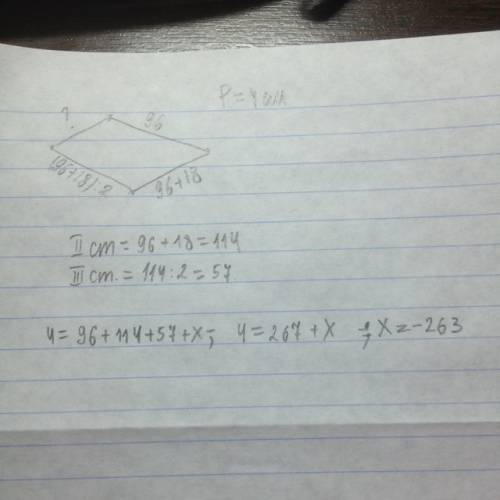 P = 4 см
?
96
(96+18):2
96+18
II ст = 96 + 18 = 114
III ст. = 114 : 2 = 57
4 = 96 + 114 + 57 + x ; 4 = 267 + x ; x = -263